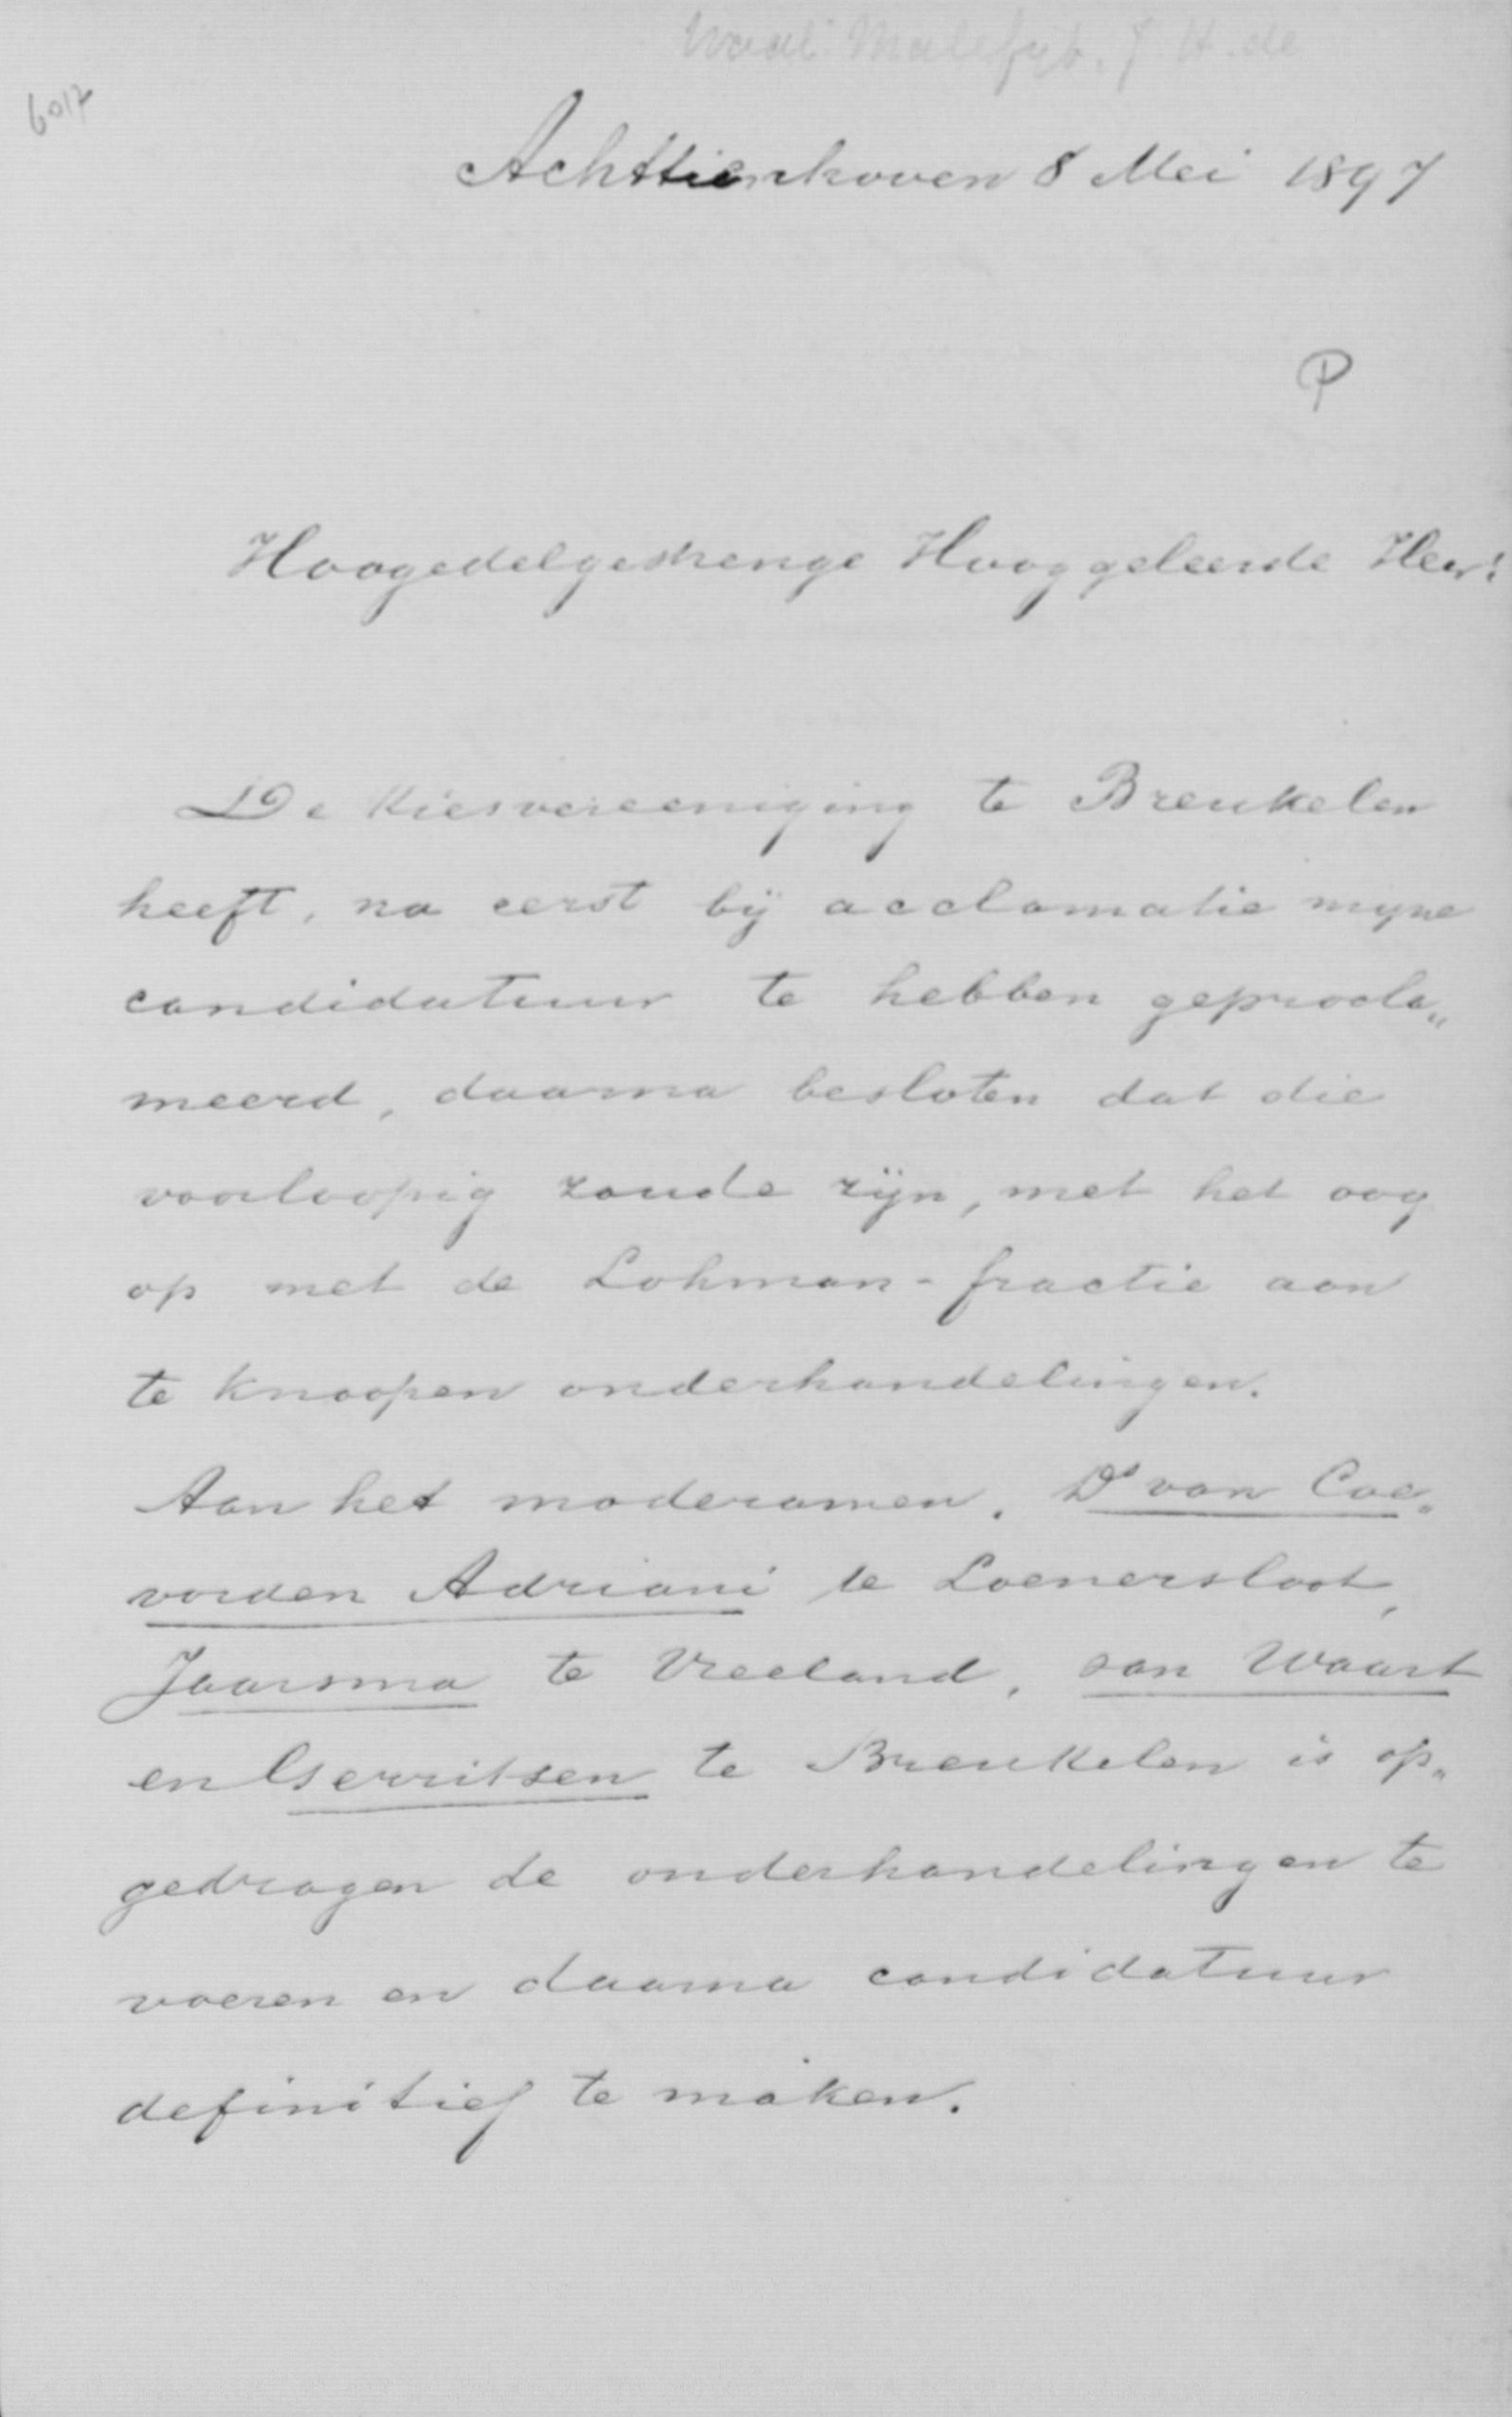 Waal Malefyt. J H. de
6017
Achttienhoven 8 Mei 1897
P
Hoogedelgestrenge Hooggeleerde Heer!
De Kiesvereeniging te Breukelen
heeft, na eerst bij acclamatie myne
candidatuur te hebben geprocla„
meerd, daarna besloten dat die
voorloopig zoude zijn, met het oog
op met de Lohman-fractie aan
te knoopen onderhandelingen.
Aan het moderamen. Ds van Coe„
vorden Adriani te Loenersloot,
Jaarsma te Vreeland, van Waart
en Gerritsen te Breukelen is op„
gedragen de onderhandelingen te
voeren en daarna candidatuur
definitief te maken.